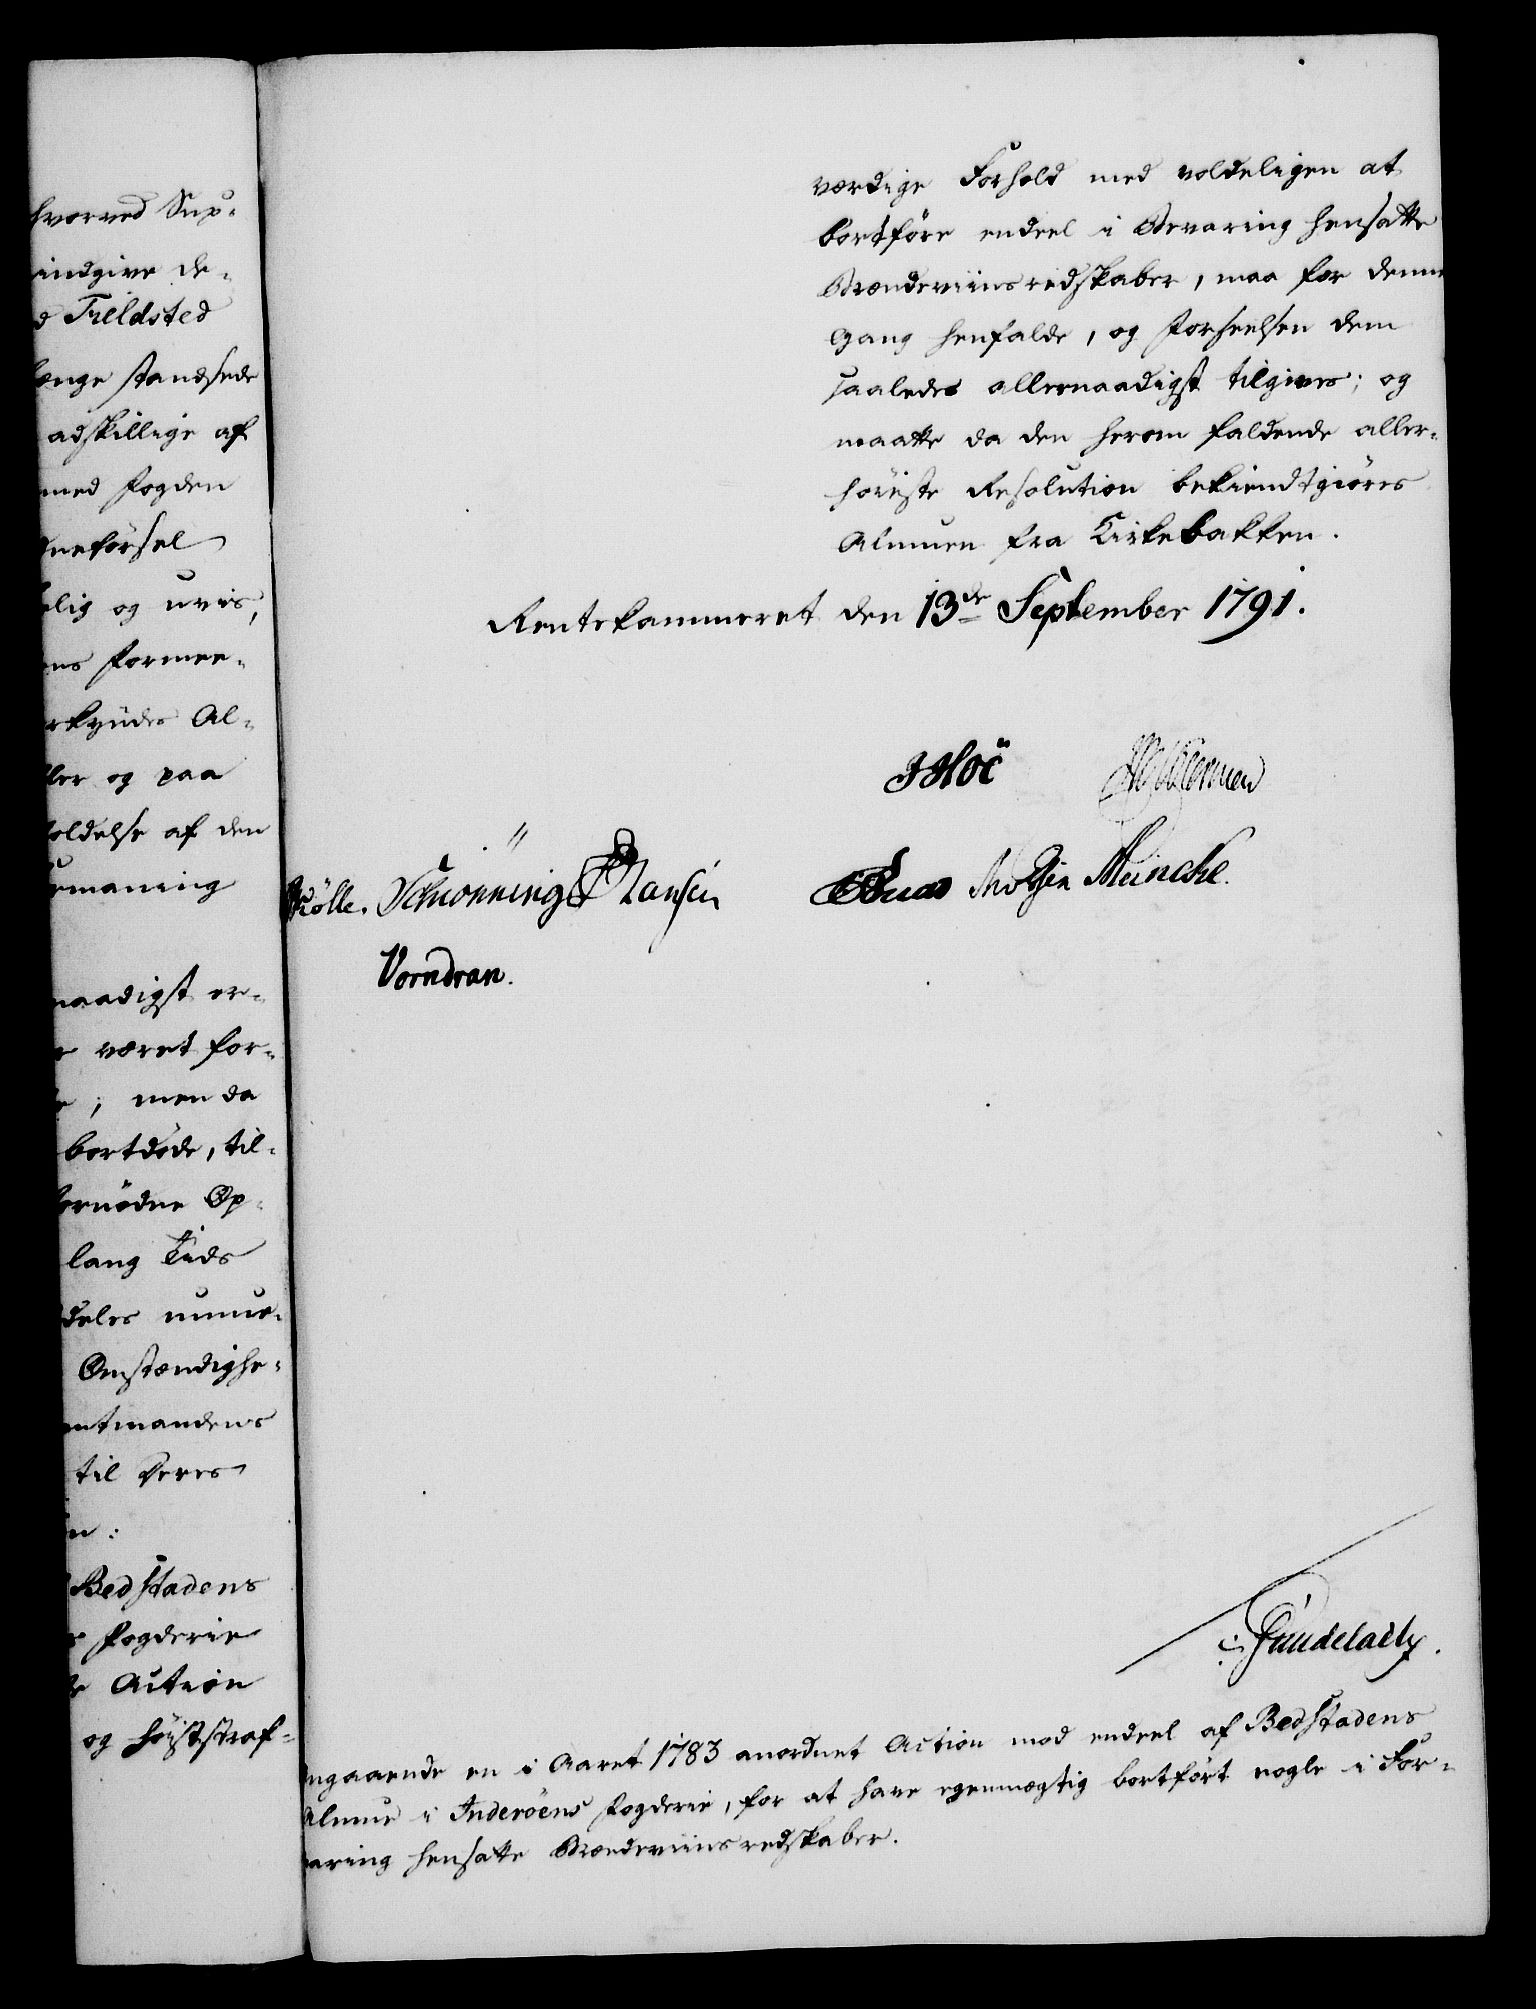 hvorved Sup-
indgive de-
Fieldsted
længe standsede
adskillige af
med Fogden
elig og uvis,
ens Formee-
rkyndes Al-
ller og paa
holdelse af den
rmaning
naadigst er-
været for-
; men da
bortdøde, til-
fornödne Op-
lang Tids
deles unue-
Omstændighe-
mtmandens
til Deres
Bedstadens
Fogderie
Action
og höist straf-
værdige Forhold med voldeligen at
bortföre endeel i Bevaring hensatte
Brændeviinsredskaber, maa for denne
Gang henfalde, og Forseelsen dem
saaledes allernaadigst tilgives; og
maatte da den herom faldende aller-
höieste Resolution bekiendtgiöres
Almuen fra Kirkebakken.
Rentekammeret den 13de September 1791.
JHoë
Kölle. Schiönning Hansen Meincke.
Vorndran.
angaaende en i Aaret 1783 anordnet Action mod endeel af Bedstadens
Almue i Inderöens Fogderie, for at have egenmægtig bortfört nogle i For-
varing hensatte Brændeviinsredskaber.